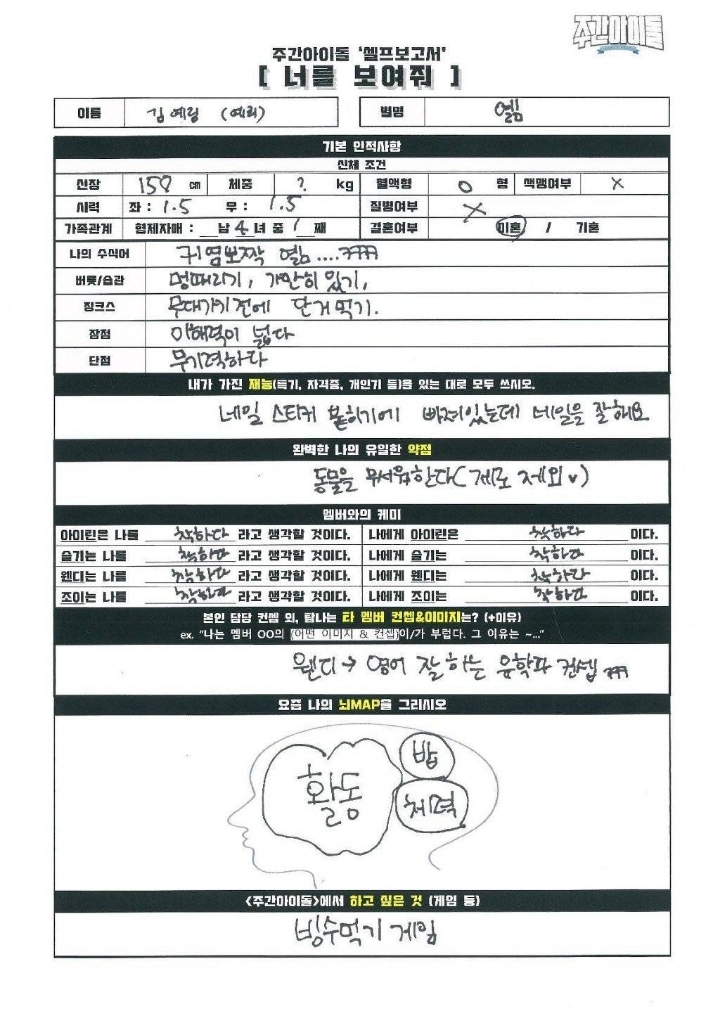 주간아이돌
주간아이돌 '셀프보고서'
[ 너를 보여줘 ]
이름 김예림 (예리) 별명 옐림
기본 인적사항
신체 조건
신장 158 cm 체중 ? kg 혈액형 O 형 색맹여부 X
시력 좌 : 1.5 우 : 1.5 질병여부 X
가족관계 형제자매 : 남 4 녀 중 1 째 결혼여부 미혼 / 기혼
나의 수식어 귀염뽀짝 옐림....ㅋㅋㅋㅋ
버릇/습관 멍때리기, 가만히 있기,
징크스 무대가기 전에 단거 먹기.
장점 이해력이 넓다
단점 무기력하다
내가 가진 재능(특기, 자격증, 개인기 등)을 있는 대로 모두 쓰시오.
네일 스티커 붙히기에 빠져있는데 네일을 잘해요
완벽한 나의 유일한 약점
동물을 무서워한다(게로 제외♥)
멤버와의 케미
아이린은 나를 착하다 라고 생각할 것이다. 나에게 아이린은 착하다 이다.
슬기는 나를 착하다 라고 생각할 것이다. 나에게 슬기는 착하다 이다.
웬디는 나를 착하다 라고 생각할 것이다. 나에게 웬디는 착하다 이다.
조이는 나를 착하다 라고 생각할 것이다. 나에게 조이는 착하다 이다.
본인 담당 컨셉 외, 탐나는 타 멤버 컨셉&이미지는? (+이유)
ex. "나는 멤버 OO의 (어떤 이미지 & 컨셉)이/가 부럽다. 그 이유는 ~..."
웬디 → 영어 잘 하는 유학파 컨셉 ㅋㅋㅋ
요즘 나의 뇌MAP을 그리시오
활동
밥
체력
<주간아이돌>에서 하고 싶은 것 (게임 등)
빙수먹기 게임